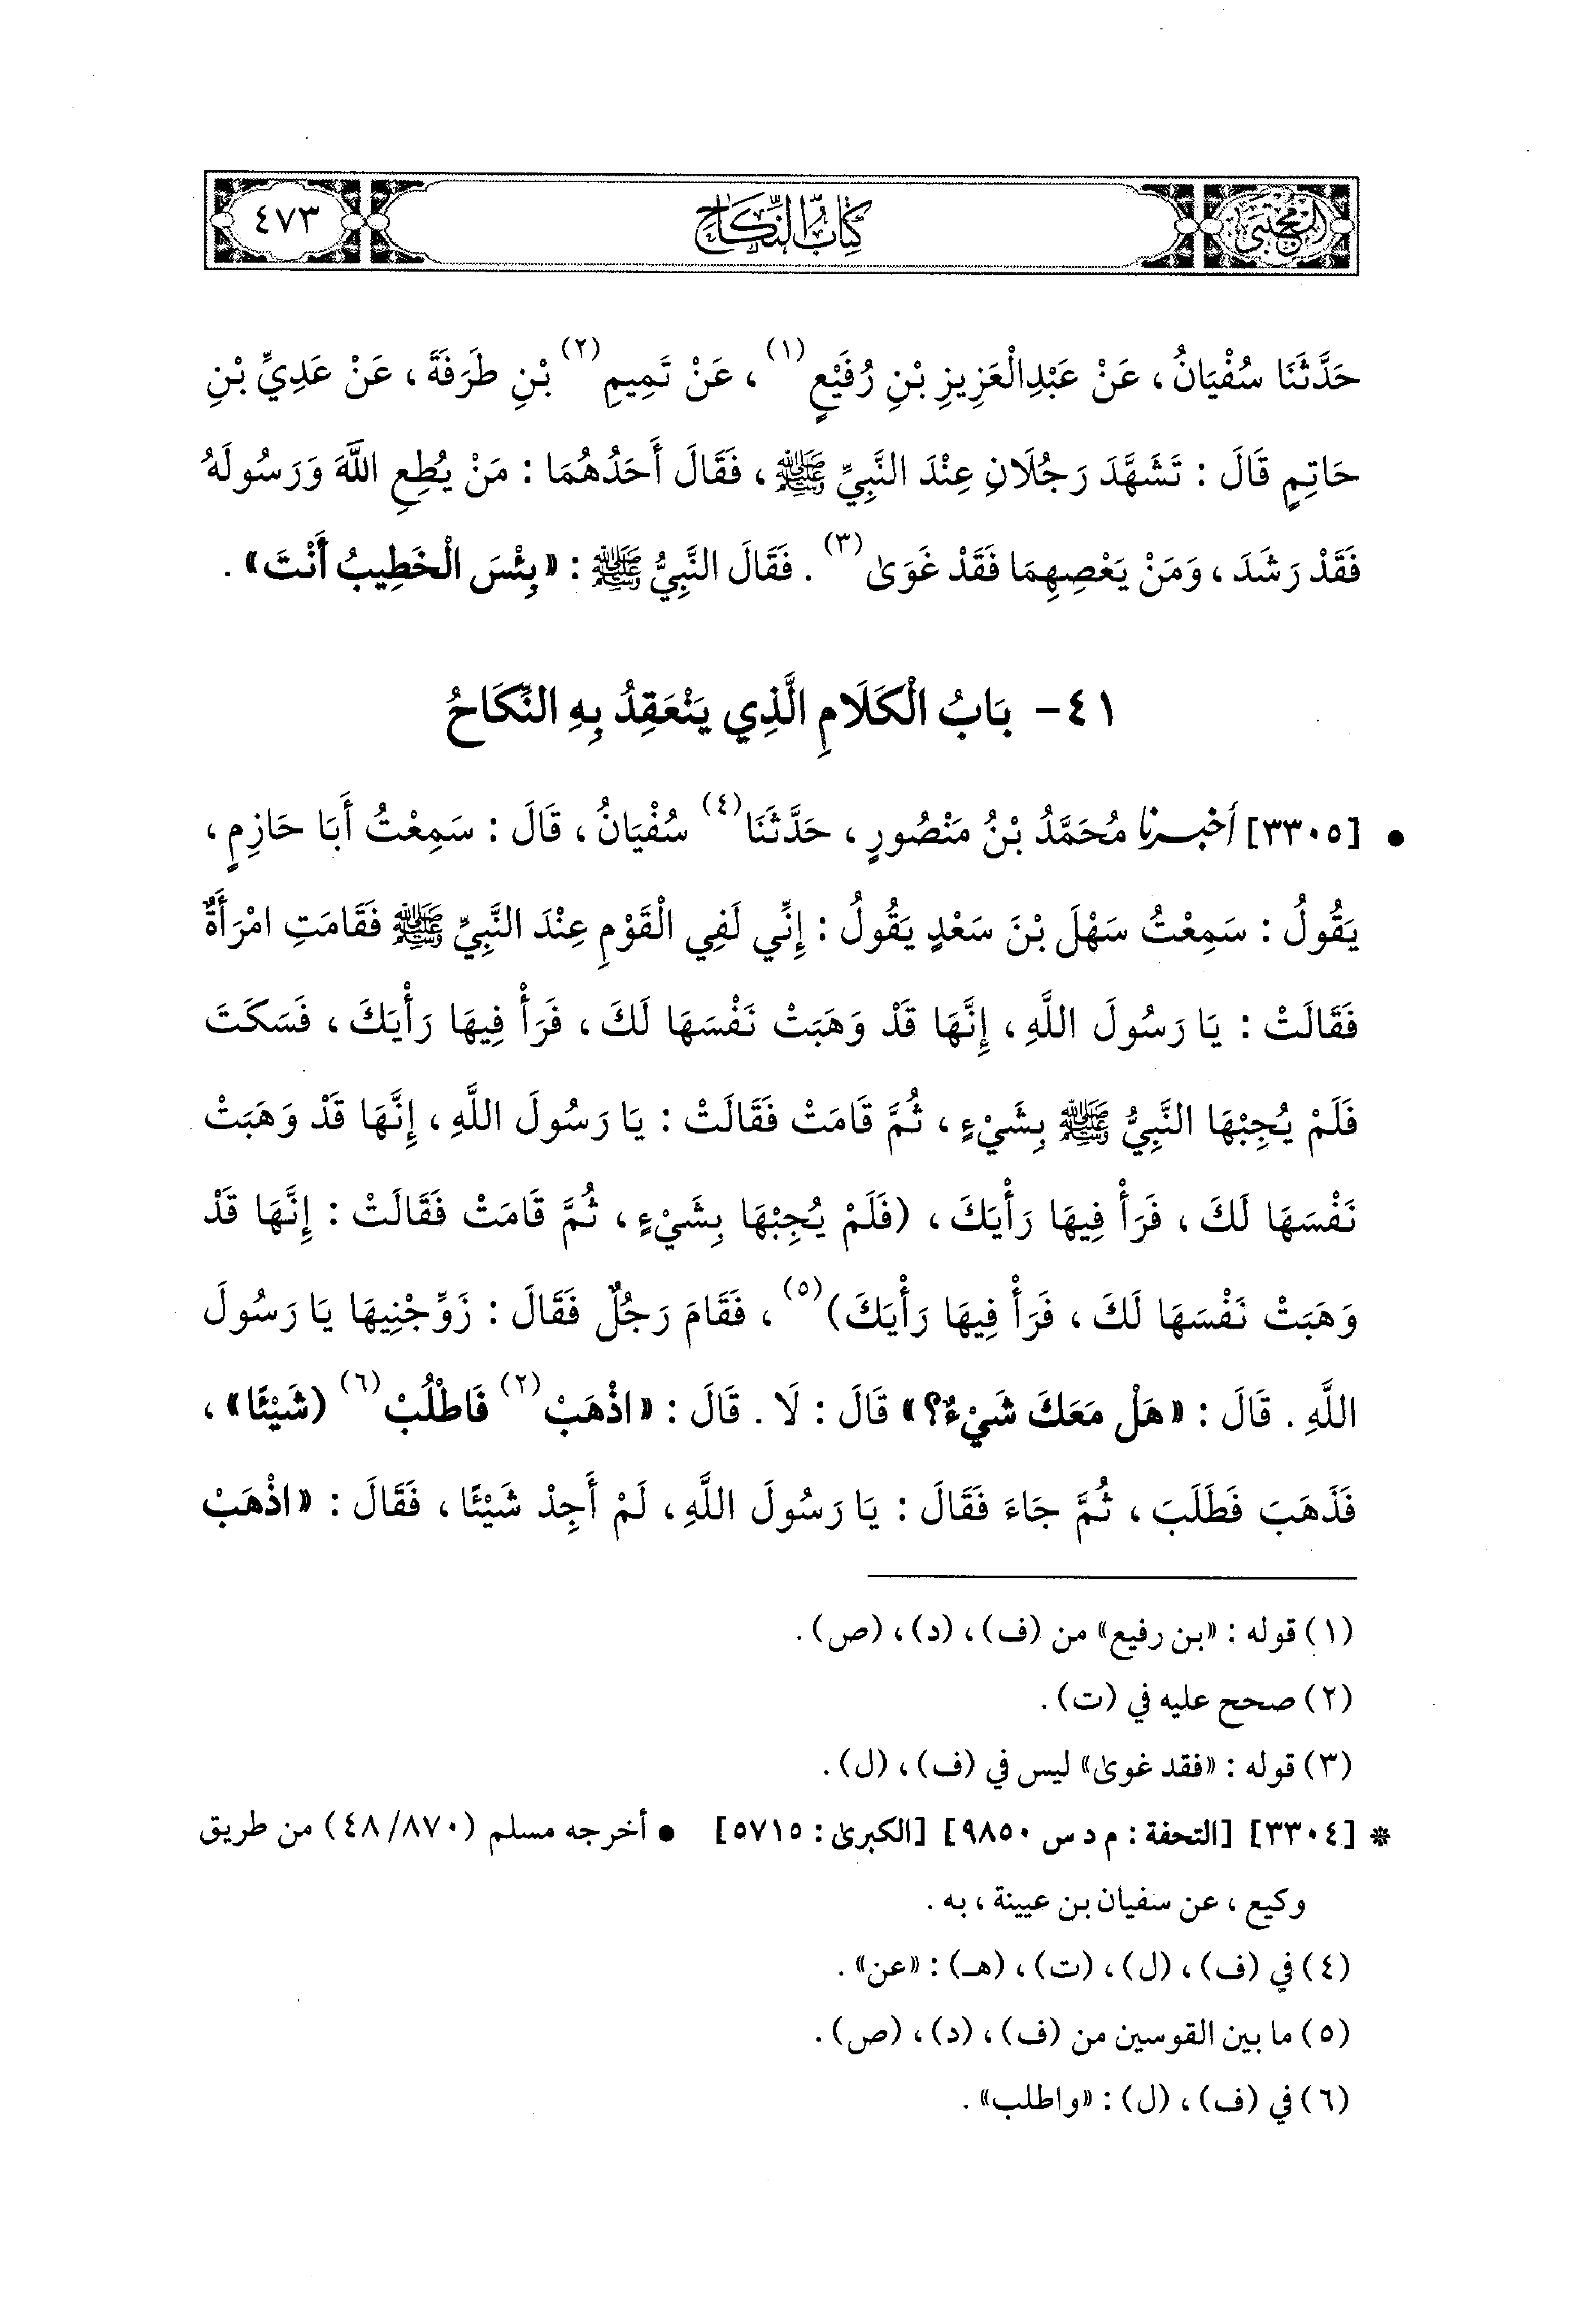 المجتبى كتاب النكاح ٤٧٣
حَدَّثَنَا سُفْيَانُ، عَنْ عَبْدِالْعَزِيزِ بْنِ رُفَيْعٍ(١)، عَنْ تَمِيمِ(٢) بْنِ طَرَفَةَ، عَنْ عَدِيِّ بْنِ
حَاتِمٍ قَالَ: تَشَهَّدَ رَجُلَانِ عِنْدَ النَّبِيِّ ﷺ، فَقَالَ أَحَدُهُمَا: مَنْ يُطِعِ اللَّهَ وَرَسُولَهُ
فَقَدْ رَشَدَ، وَمَنْ يَعْصِهِمَا فَقَدْ غَوَىٰ(٣). فَقَالَ النَّبِيُّ ﷺ: «بِئْسَ الْخَطِيبُ أَنْتَ».
٤١- بَابُ الْكَلَامِ الَّذِي يَنْعَقِدُ بِهِ النِّكَاحُ
• [٣٣٠٥] أخبرنا مُحَمَّدُ بْنُ مَنْصُورٍ، حَدَّثَنَا(٤) سُفْيَانُ، قَالَ: سَمِعْتُ أَبَا حَازِمٍ،
يَقُولُ: سَمِعْتُ سَهْلَ بْنَ سَعْدٍ يَقُولُ: إِنِّي لَفِي الْقَوْمِ عِنْدَ النَّبِيِّ ﷺ فَقَامَتِ امْرَأَةٌ
فَقَالَتْ: يَا رَسُولَ اللَّهِ، إِنَّهَا قَدْ وَهَبَتْ نَفْسَهَا لَكَ، فَرَأْ فِيهَا رَأْيَكَ، فَسَكَتَ
فَلَمْ يُجِبْهَا النَّبِيُّ ﷺ بِشَيْءٍ، ثُمَّ قَامَتْ فَقَالَتْ: يَا رَسُولَ اللَّهِ، إِنَّهَا قَدْ وَهَبَتْ
نَفْسَهَا لَكَ، فَرَأْ فِيهَا رَأْيَكَ، (فَلَمْ يُجِبْهَا بِشَيْءٍ، ثُمَّ قَامَتْ فَقَالَتْ: إِنَّهَا قَدْ
وَهَبَتْ نَفْسَهَا لَكَ، فَرَأْ فِيهَا رَأْيَكَ)(٥)، فَقَامَ رَجُلٌ فَقَالَ: زَوِّجْنِيهَا يَا رَسُولَ
اللَّهِ. قَالَ: «هَلْ مَعَكَ شَيْءٌ؟» قَالَ: لَا. قَالَ: «اذْهَبْ(٢) فَاطْلُبْ(٦) (شَيْئًا»،
فَذَهَبَ فَطَلَبَ، ثُمَّ جَاءَ فَقَالَ: يَا رَسُولَ اللَّهِ، لَمْ أَجِدْ شَيْئًا، فَقَالَ: «اذْهَبْ
(١) قوله: «بن رفيع» من (ف)، (د)، (ص).
(٢) صحح عليه في (ت).
(٣) قوله: «فقد غوىٰ» ليس في (ف)، (ل).
* [٣٣٠٤] [التحفة: م د س ٩٨٥٠] [الكبرىٰ: ٥٧١٥] • أخرجه مسلم (٤٨/٨٧٠) من طريق
وكيع، عن سفيان بن عيينة، به.
(٤) في (ف)، (ل)، (ت)، (هـ): «عن».
(٥) ما بين القوسين من (ف)، (د)، (ص).
(٦) في (ف)، (ل): «واطلب».